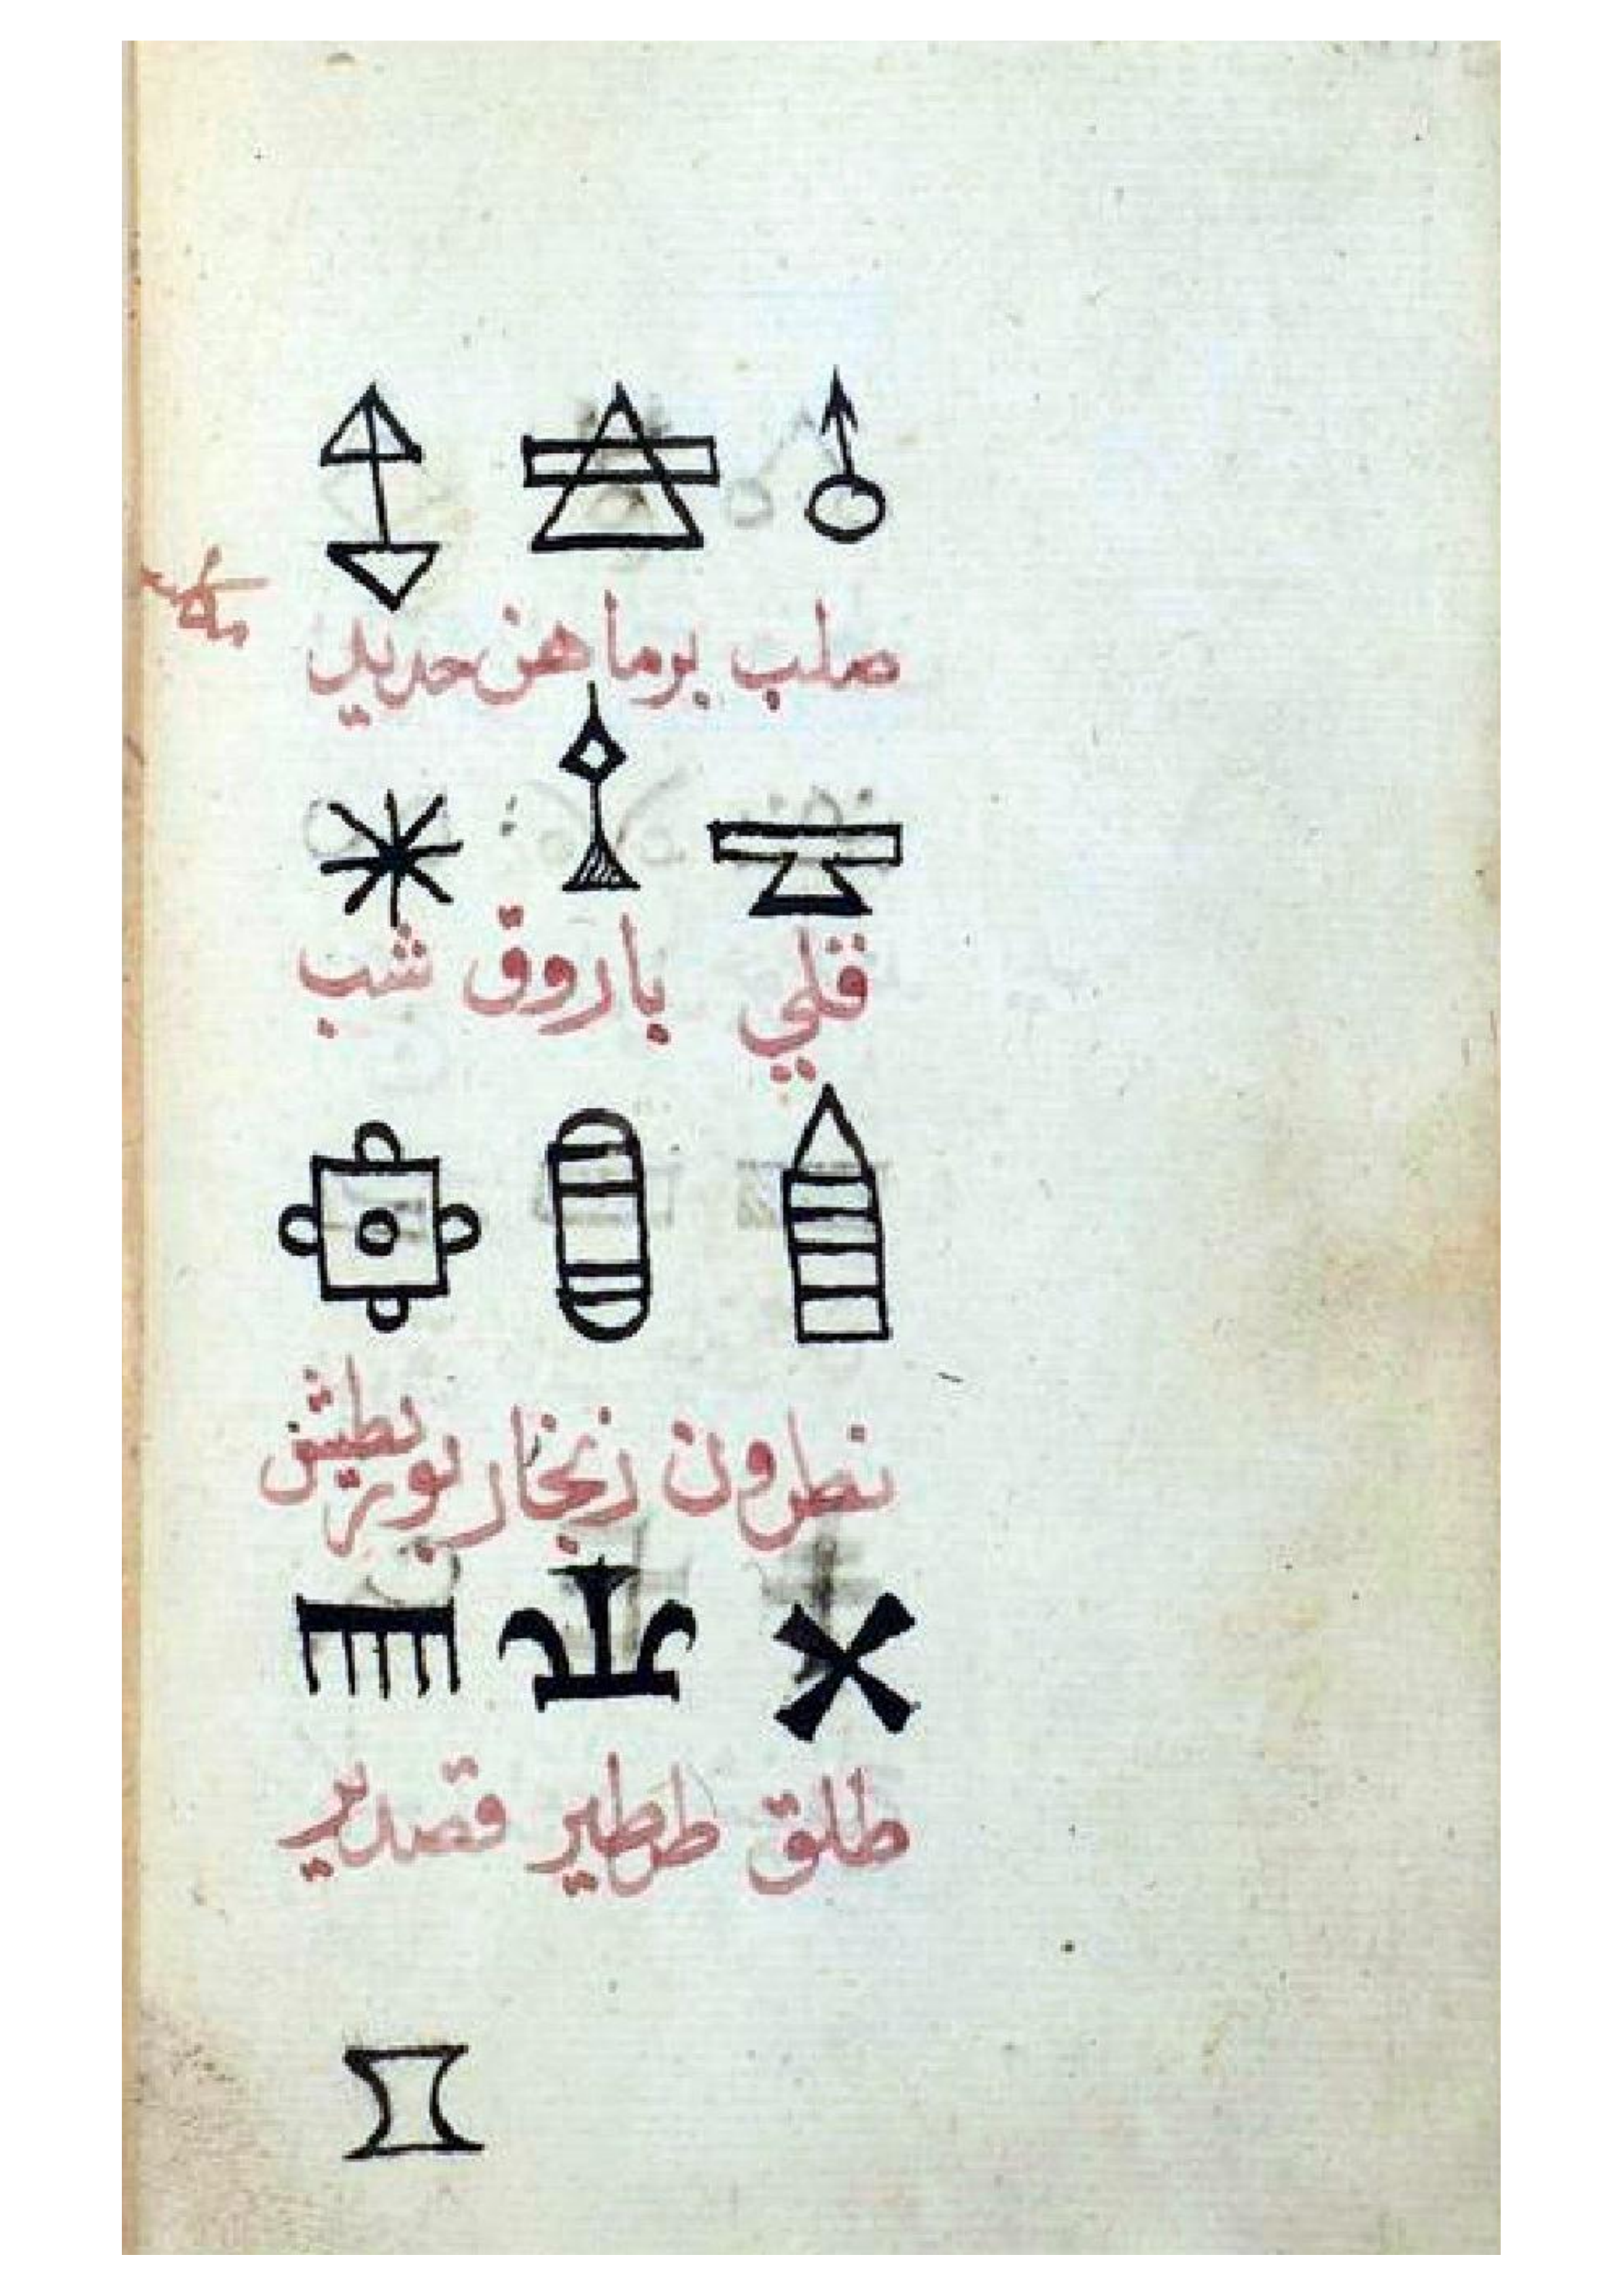 صلب برماهن حديد
قلي باروق شب
نطرون زنجار بورق
طلق ططير قصدير